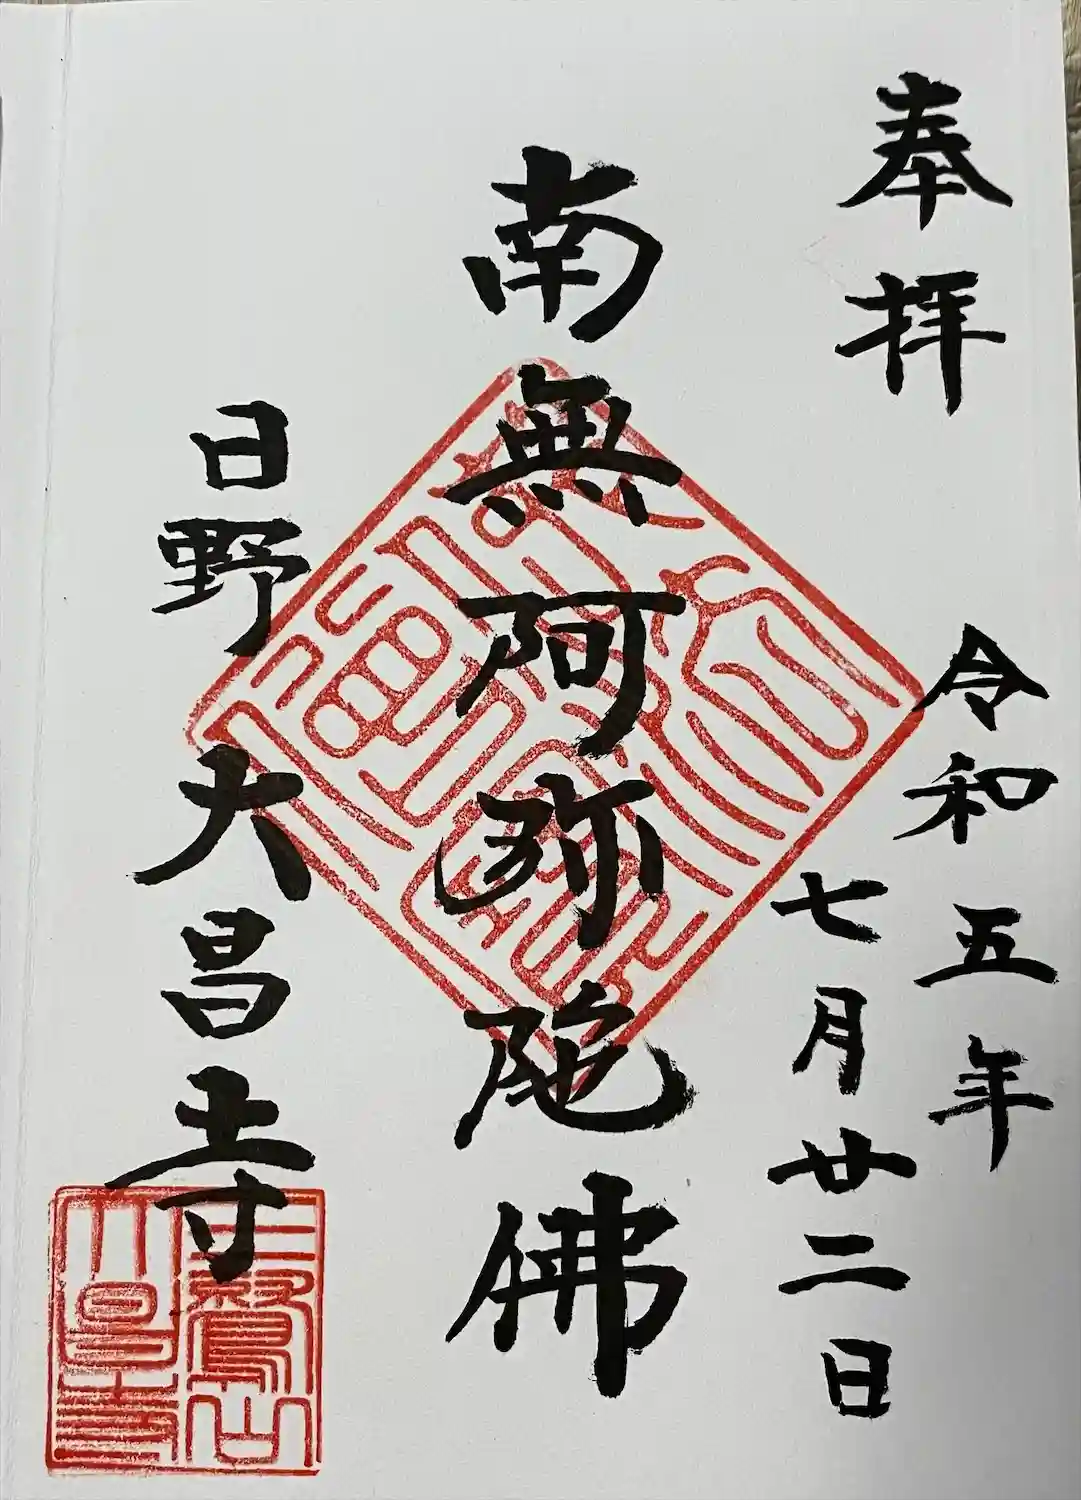 奉拝
令和五年
七月廿二日
南無阿弥陀佛
日野大昌寺